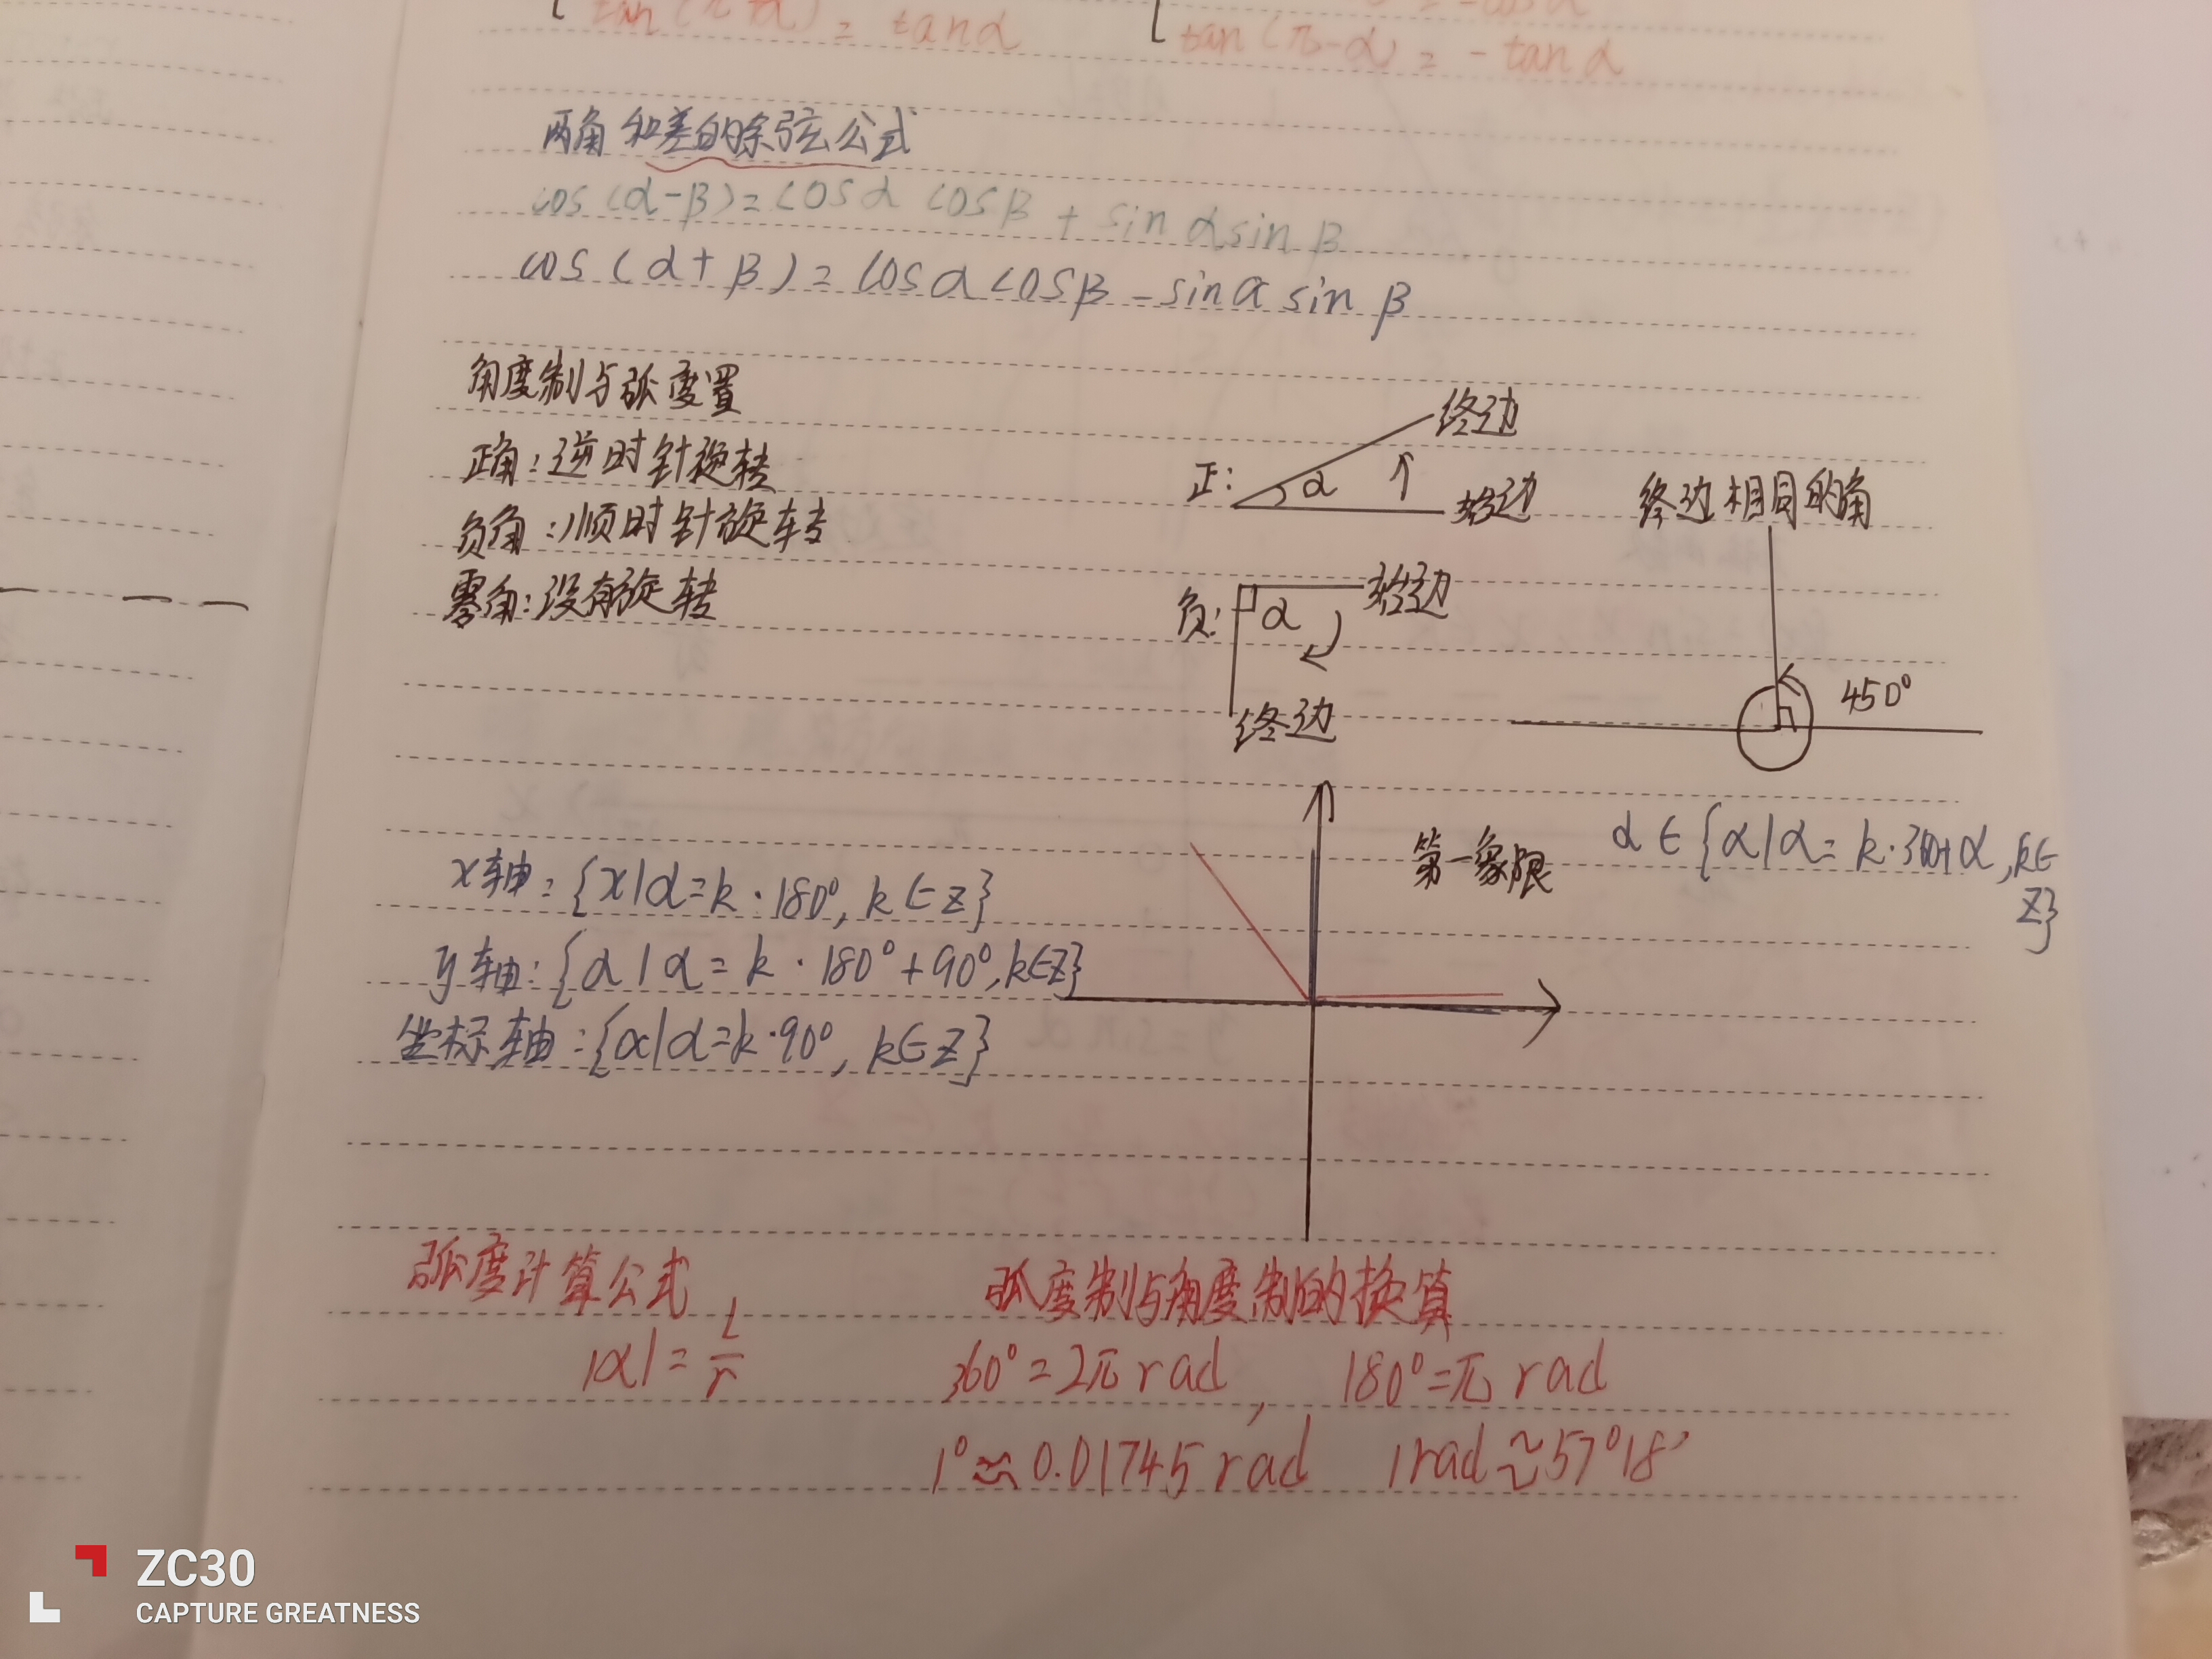 tan(π+α) = tanα
= -cosα
tan(π-α) = -tanα
两角和差的余弦公式
cos(α-β)=cosα cosβ + sinαsinβ
cos(α+β)=cosαcosβ-sinαsinβ
角度制与弧度置
正角:逆时针旋转
负角:顺时针旋转
零角:没有旋转
正:
α
终边
始边
负:
α
始边
终边
终边相同的角
450°
x轴:{x|α=k·180°, k∈Z}
y轴:{α|α=k·180°+90°,k∈Z}
坐标轴:{α|α=k·90°, k∈Z}
第一象限
α∈{α|α=k·360+α,k∈
Z}
弧度计算公式
|α|=L/r
弧度制与角度制的换算
360°=2π rad, 180°=π rad
1°≈0.01745 rad 1rad≈57°18′
ZC30
CAPTURE GREATNESS